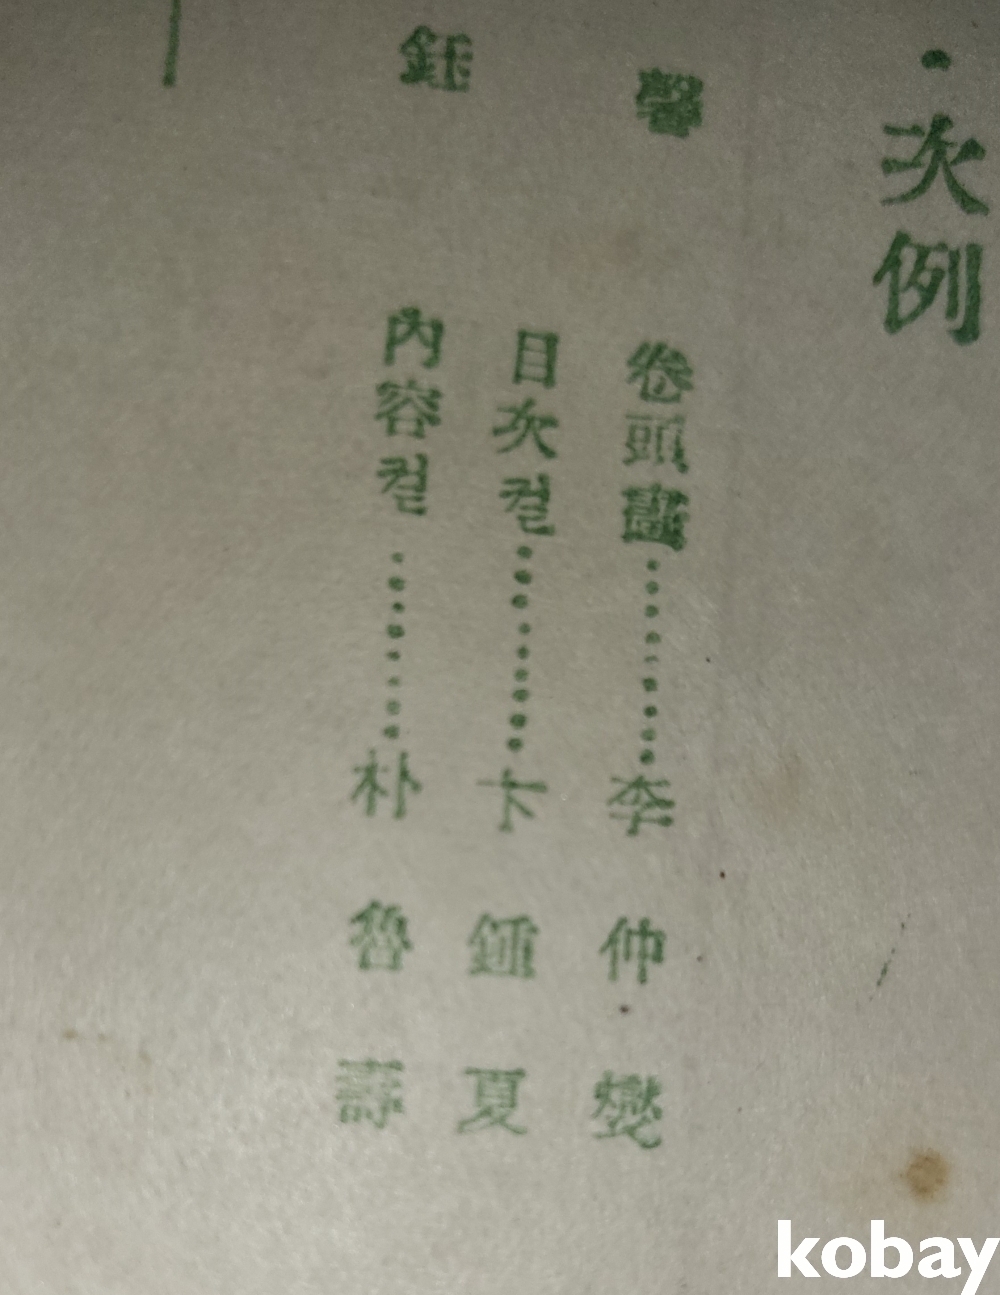 ·次例
馨
卷頭畵·········李仲燮
鈺
目次컬·········卞鍾夏
內容컬·········朴魯壽
kobay